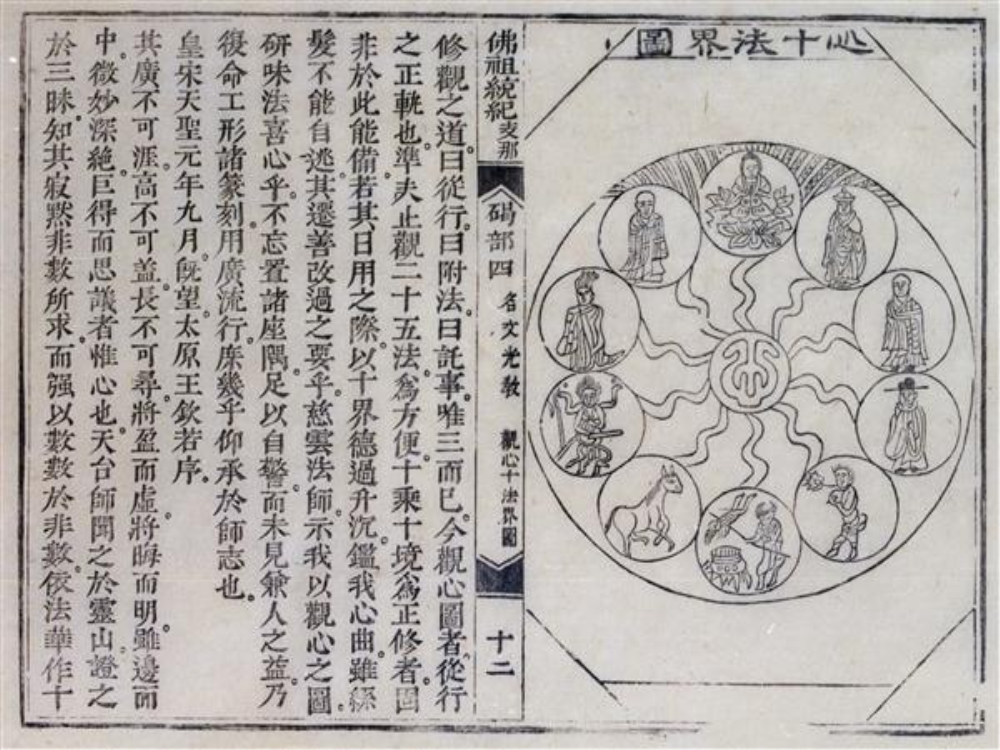 心十法界圖
佛祖統紀 支那 碣部四 名文光教 觀心十法界圖 十二
修觀之道。曰從行。曰附法。曰託事。唯三而已。今觀心圖者。從行
之正軌也。準夫止觀二十五法為方便。十乘十境為正修者。固
非於此能備。若其日用之際。以十界德過升沉。鑑我心曲。雖絲
髮不能自逃。其遷善改過之要乎。慈雲法師。示我以觀心之圖。
研味法喜。心乎不忘。置諸座隅。足以自警。而未見兼人之益。乃
復命工形諸篆刻。用廣流行。庶幾乎仰承於師志也。
皇宋天聖元年九月。既望。太原王欽若序。
其廣不可涯。高不可蓋。長不可尋。將盈而虛。將晦而明。雖邊而
中。微妙深絕。巨得而思議者。惟心也。天台師聞之於靈山。證之
於三昧。知其寂默。非數所求。而强以數。數於非數。依法華作十